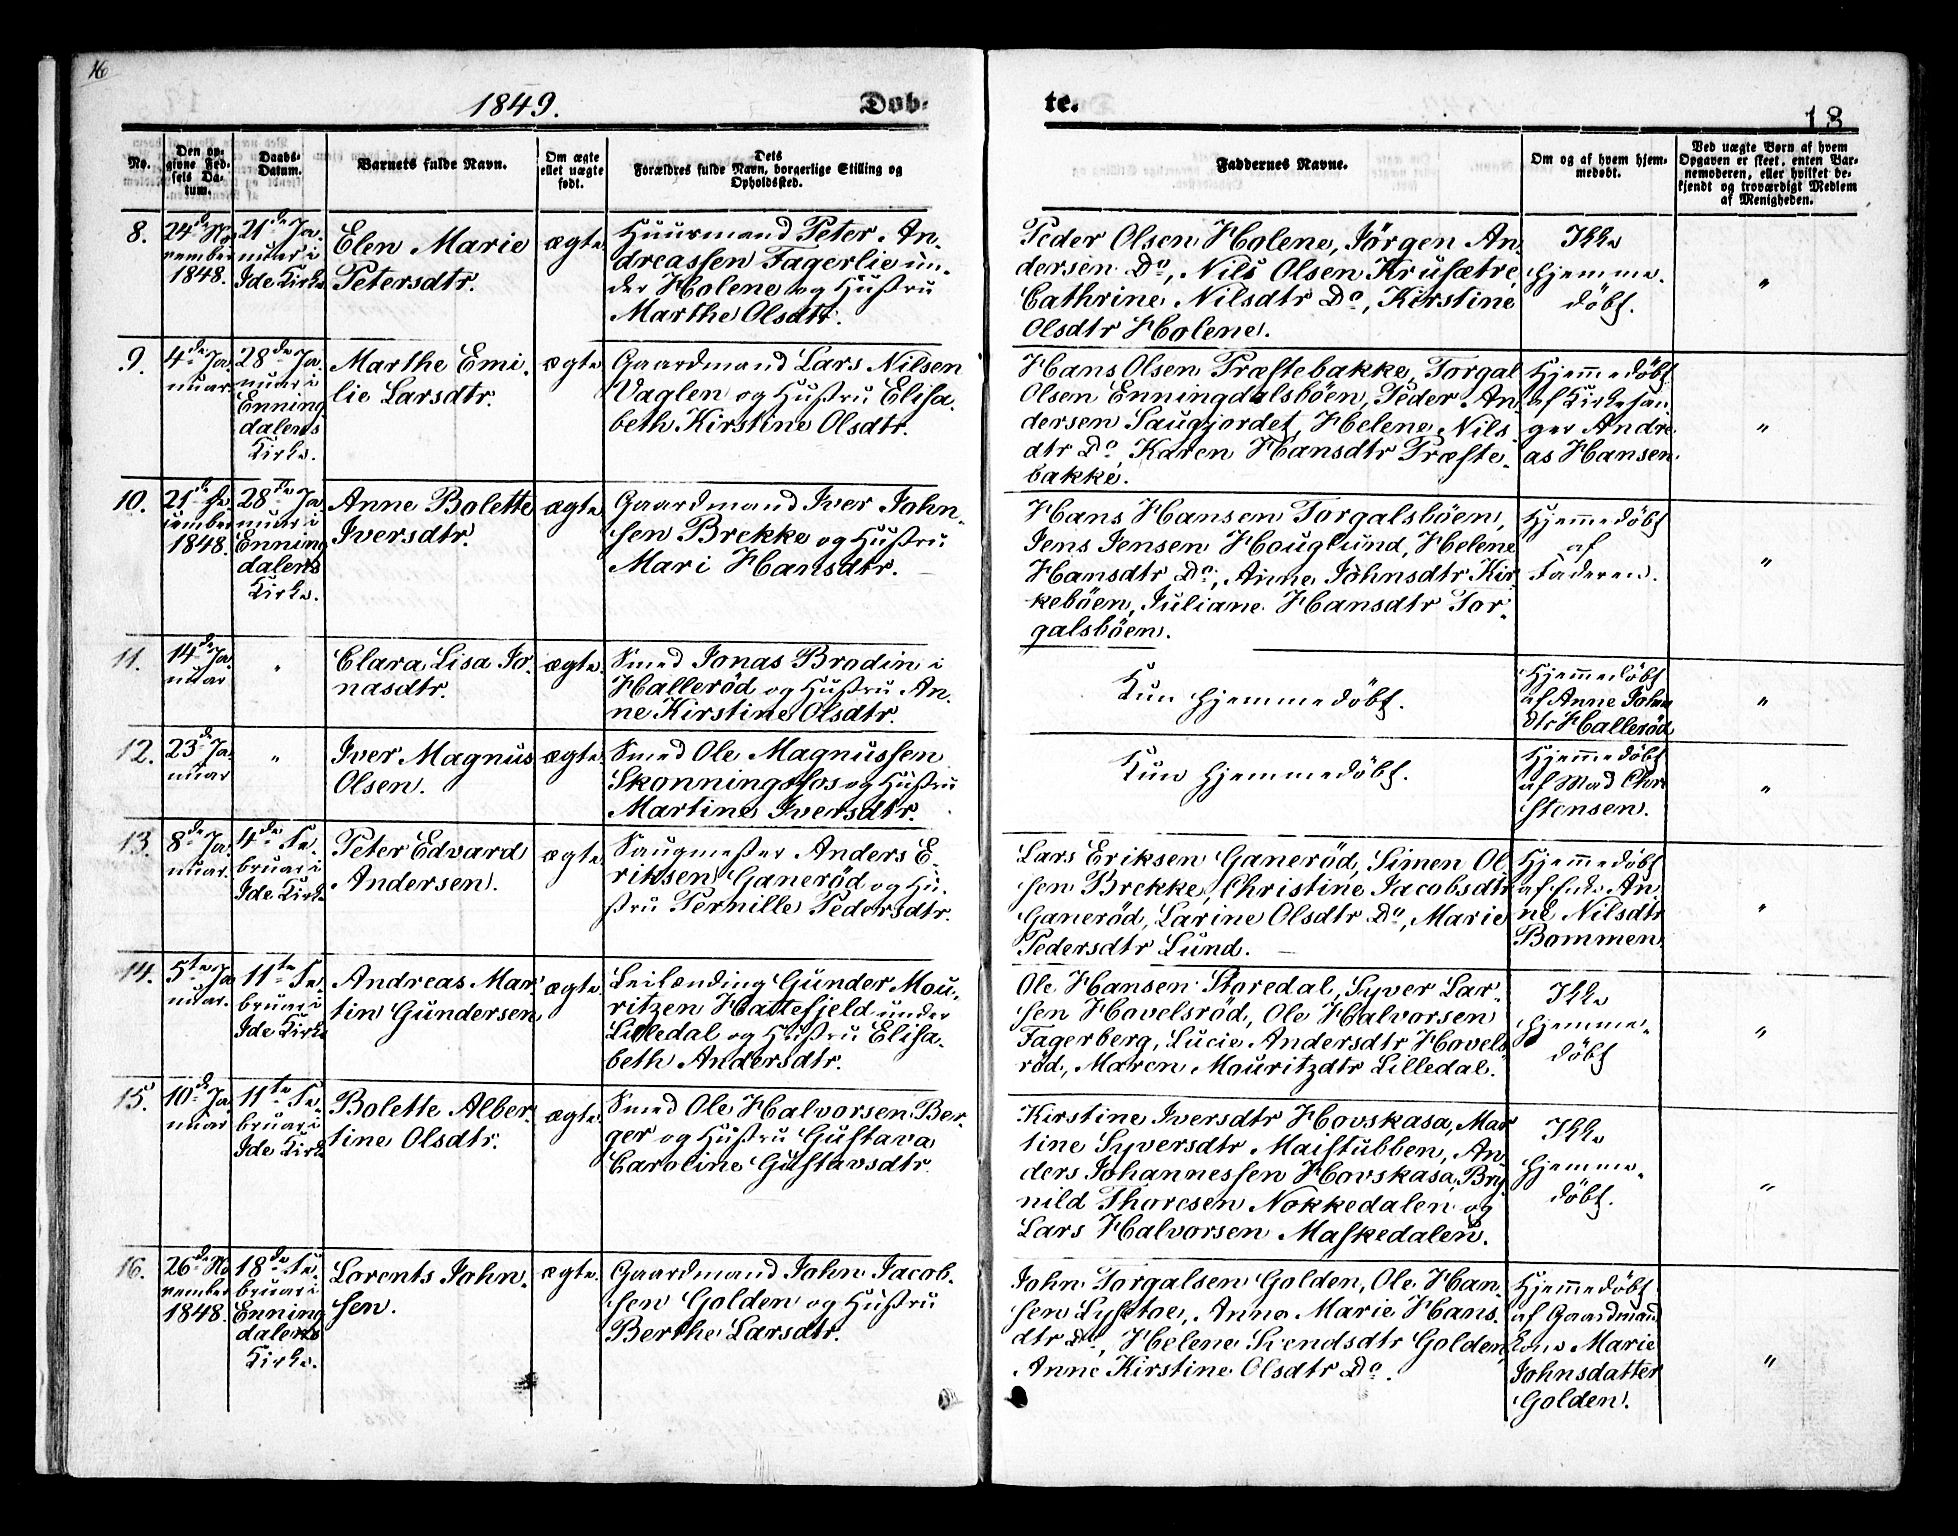 16
1849.
Døb-
te.
18
No.
Den op-
givne Fød-
sels Da-
tum.
Daabs-
Datum.
Barnets fulde Navn.
Om ægte
ellet uægte
født.
Dets
Forældres fulde Navn, borgerlige Stilling og
Opholdssted.
Faddernes Navne.
Om og af hvem hjem-
medøbt.
Ved uægte Børn af hvem
Opgaven er skeet, enten Bar-
nemoderen, eller hvilket be-
kjendt og troværdigt Medlem
af Menigheden.
8.
24de No-
vember
1848.
21de Ja-
nuar i
Ide Kirke
Elen Marie
Petersdtr.
ægte
Huusmand Peter An-
dreassen Fagerlie un-
der Holene og Hustru
Marthe Olsdtr.
Peder Olsen Holene, Jörgen An-
dersen Do, Nils Olsen Krusætre,
Cathrine Nilsdtr Do, Kirstine
Olsdtr Holene.
Ikke
hjemme-
döbt.
"
9.
4de Ja-
nuar
28de Ja-
nuar i
Enning
dalens
Kirke.
Marthe Emi-
lie Larsdtr.
ægte
Gaardmand Lars Nilsen
Vaglen og Hustru Elisa-
beth Kirstine Olsdtr.
Hans Olsen Præstebakke, Torgal
Olsen Enningdalsböen, Peder An-
dersen Saugjordet, Helene Nils-
dtr Do, Karen Hansdtr Præste-
bakke.
Hjemmedöbt
af Kirkesan-
ger Andre-
as Hansen
"
10.
21de De-
cember
1848.
28de Ja-
nuar i
Enning
dalens
Kirke.
Anne Bolette
Iversdtr.
ægte
Gaardmand Iver John-
sen Brekke og Hustru
Mari Hansdtr.
Hans Hansen Torgalsböen,
Jens Jensen Houglund, Helene
Hansdtr Do, Anne Johnsdtr Kir-
keböen, Juliane Hansdtr Tor-
galsböen.
Hjemmedöbt
af
Faderen.
"
11.
14de Ja-
nuar
"
Clara Lisa Jo-
nasdtr.
ægte
Smed Jonas Brodin i
Halleröd og Hustru An-
ne Kirstine Olsdtr.
Kun hjemmedöbt.
Hjemmedöbt
af Anne Johns
dtr Halleröd
"
12.
23de Ja-
nuar
"
Iver Magnus
Olsen.
ægte
Smed Ole Magnussen
Skonningsfos og Hustru
Martine Iversdtr.
Kun hjemmedöbt.
Hjemmedöbt
af Mad Chri
stensen.
"
13.
8de Ja-
nuar.
4de Fe-
bruar i
Ide Kirke
Peter Edvard
Andersen.
ægte
Saugmester Anders E-
riksen Ganeröd og Hu-
stru Pernille Pedersdtr.
Lars Eriksen Ganeröd, Simen Ol-
sen Brekke, Christine Jacobsdtr
Ganeröd, Larine Olsdtr Do, Marie
Pedersdtr Lund.
Hjemmedöbt
An
ne Nilsdtr
Bommen
"
14.
5te Ja-
nuar.
11te Fe-
bruar i
Ide Kirke
Andreas Mar-
tin Gundersen
ægte
Leilænding Gunder Mou-
ritzen Hattefjeld under
Lilledal og Hustru Elisa-
beth Andersdtr.
Ole Hansen Storedal, Syver Lar-
sen Hovelsröd, Ole Halvorsen
Fagerberg, Lucie Andersdtr Hovels
röd, Maren Mouritzdtr Lilledal.
Ikke
hjemme-
döbt
"
15.
10de Ja-
nuar
11te Fe-
bruar i
Ide Kirke
Bolette Alber-
tine Olsdtr.
ægte
Smed Ole Halvorsen Ber-
ger og Hustru Gustava
Caroline Gustavsdtr.
Kirstine Iversdtr Hovskasa, Mar
tine Syversdtr Maistubben, An-
ders Johannessen Hovskasa, Bry-
nild Thoresen Nokkedalen og
Lars Halvorsen Maskedalen.
Ikke
hjemme-
döbt.
"
16.
26de No-
vember
1848.
18de Fe-
bruar i
Enning
dalens
Kirke.
Lorents John-
sen.
ægte
Gaardmand John Jacob-
sen Golden og Hustru
Berthe Larsdtr.
John Torgalsen Golden, Ole Han-
sen Lystoe, Anne Marie Hans-
dtr Do, Helene Svendsdtr Golden,
Anne Kirstine Olsdtr Do.
Hjemmedöbt
af Gaardmand
Kone Marie
Johnsdatter
Golden.
"